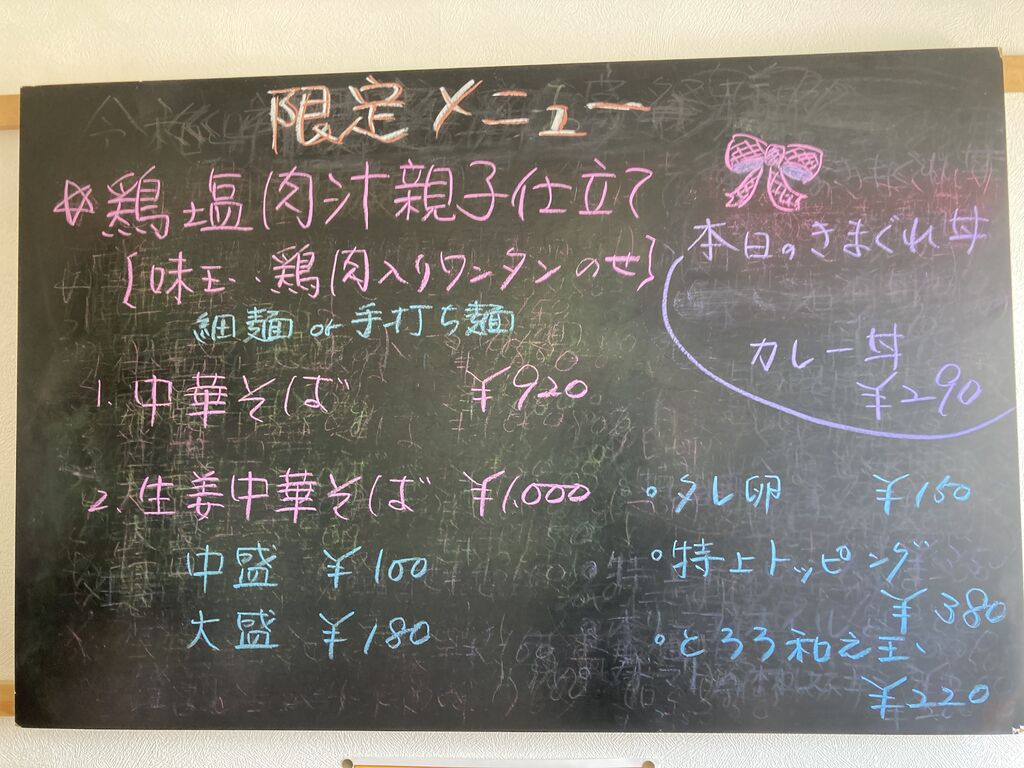 限定メニュー
☆鶏塩肉汁親子仕立て
[味玉、鶏肉入りワンタンのせ]
細麺 or 手打ち麺
1. 中華そば ¥920
2. 生姜中華そば ¥1,000
中盛 ¥100
大盛 ¥180
本日のきまぐれ丼
カレー丼
¥290
◦タレ卵 ¥150
◦特上トッピング
¥380
◦とろろ和え玉
¥220